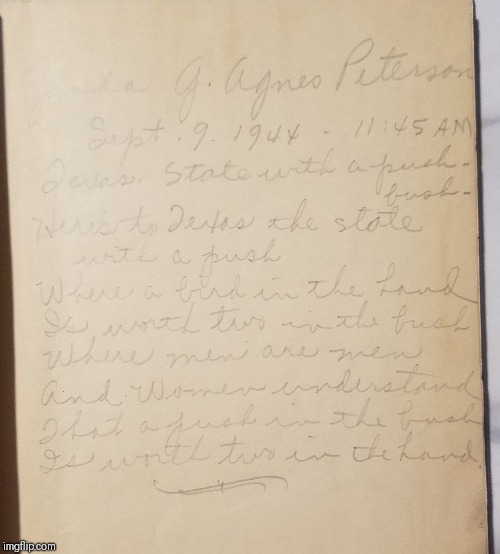 G. Agnes Peterson
Sept. 9. 1944 - 11:45 AM
Texas. State with a push-
bush-
Here's to Texas the state
with a push
Where a bird in the hand
Is worth two in the bush
Where men are men
And Women understand
That a push in the bush
Is worth two in the hand.
imgflip.com